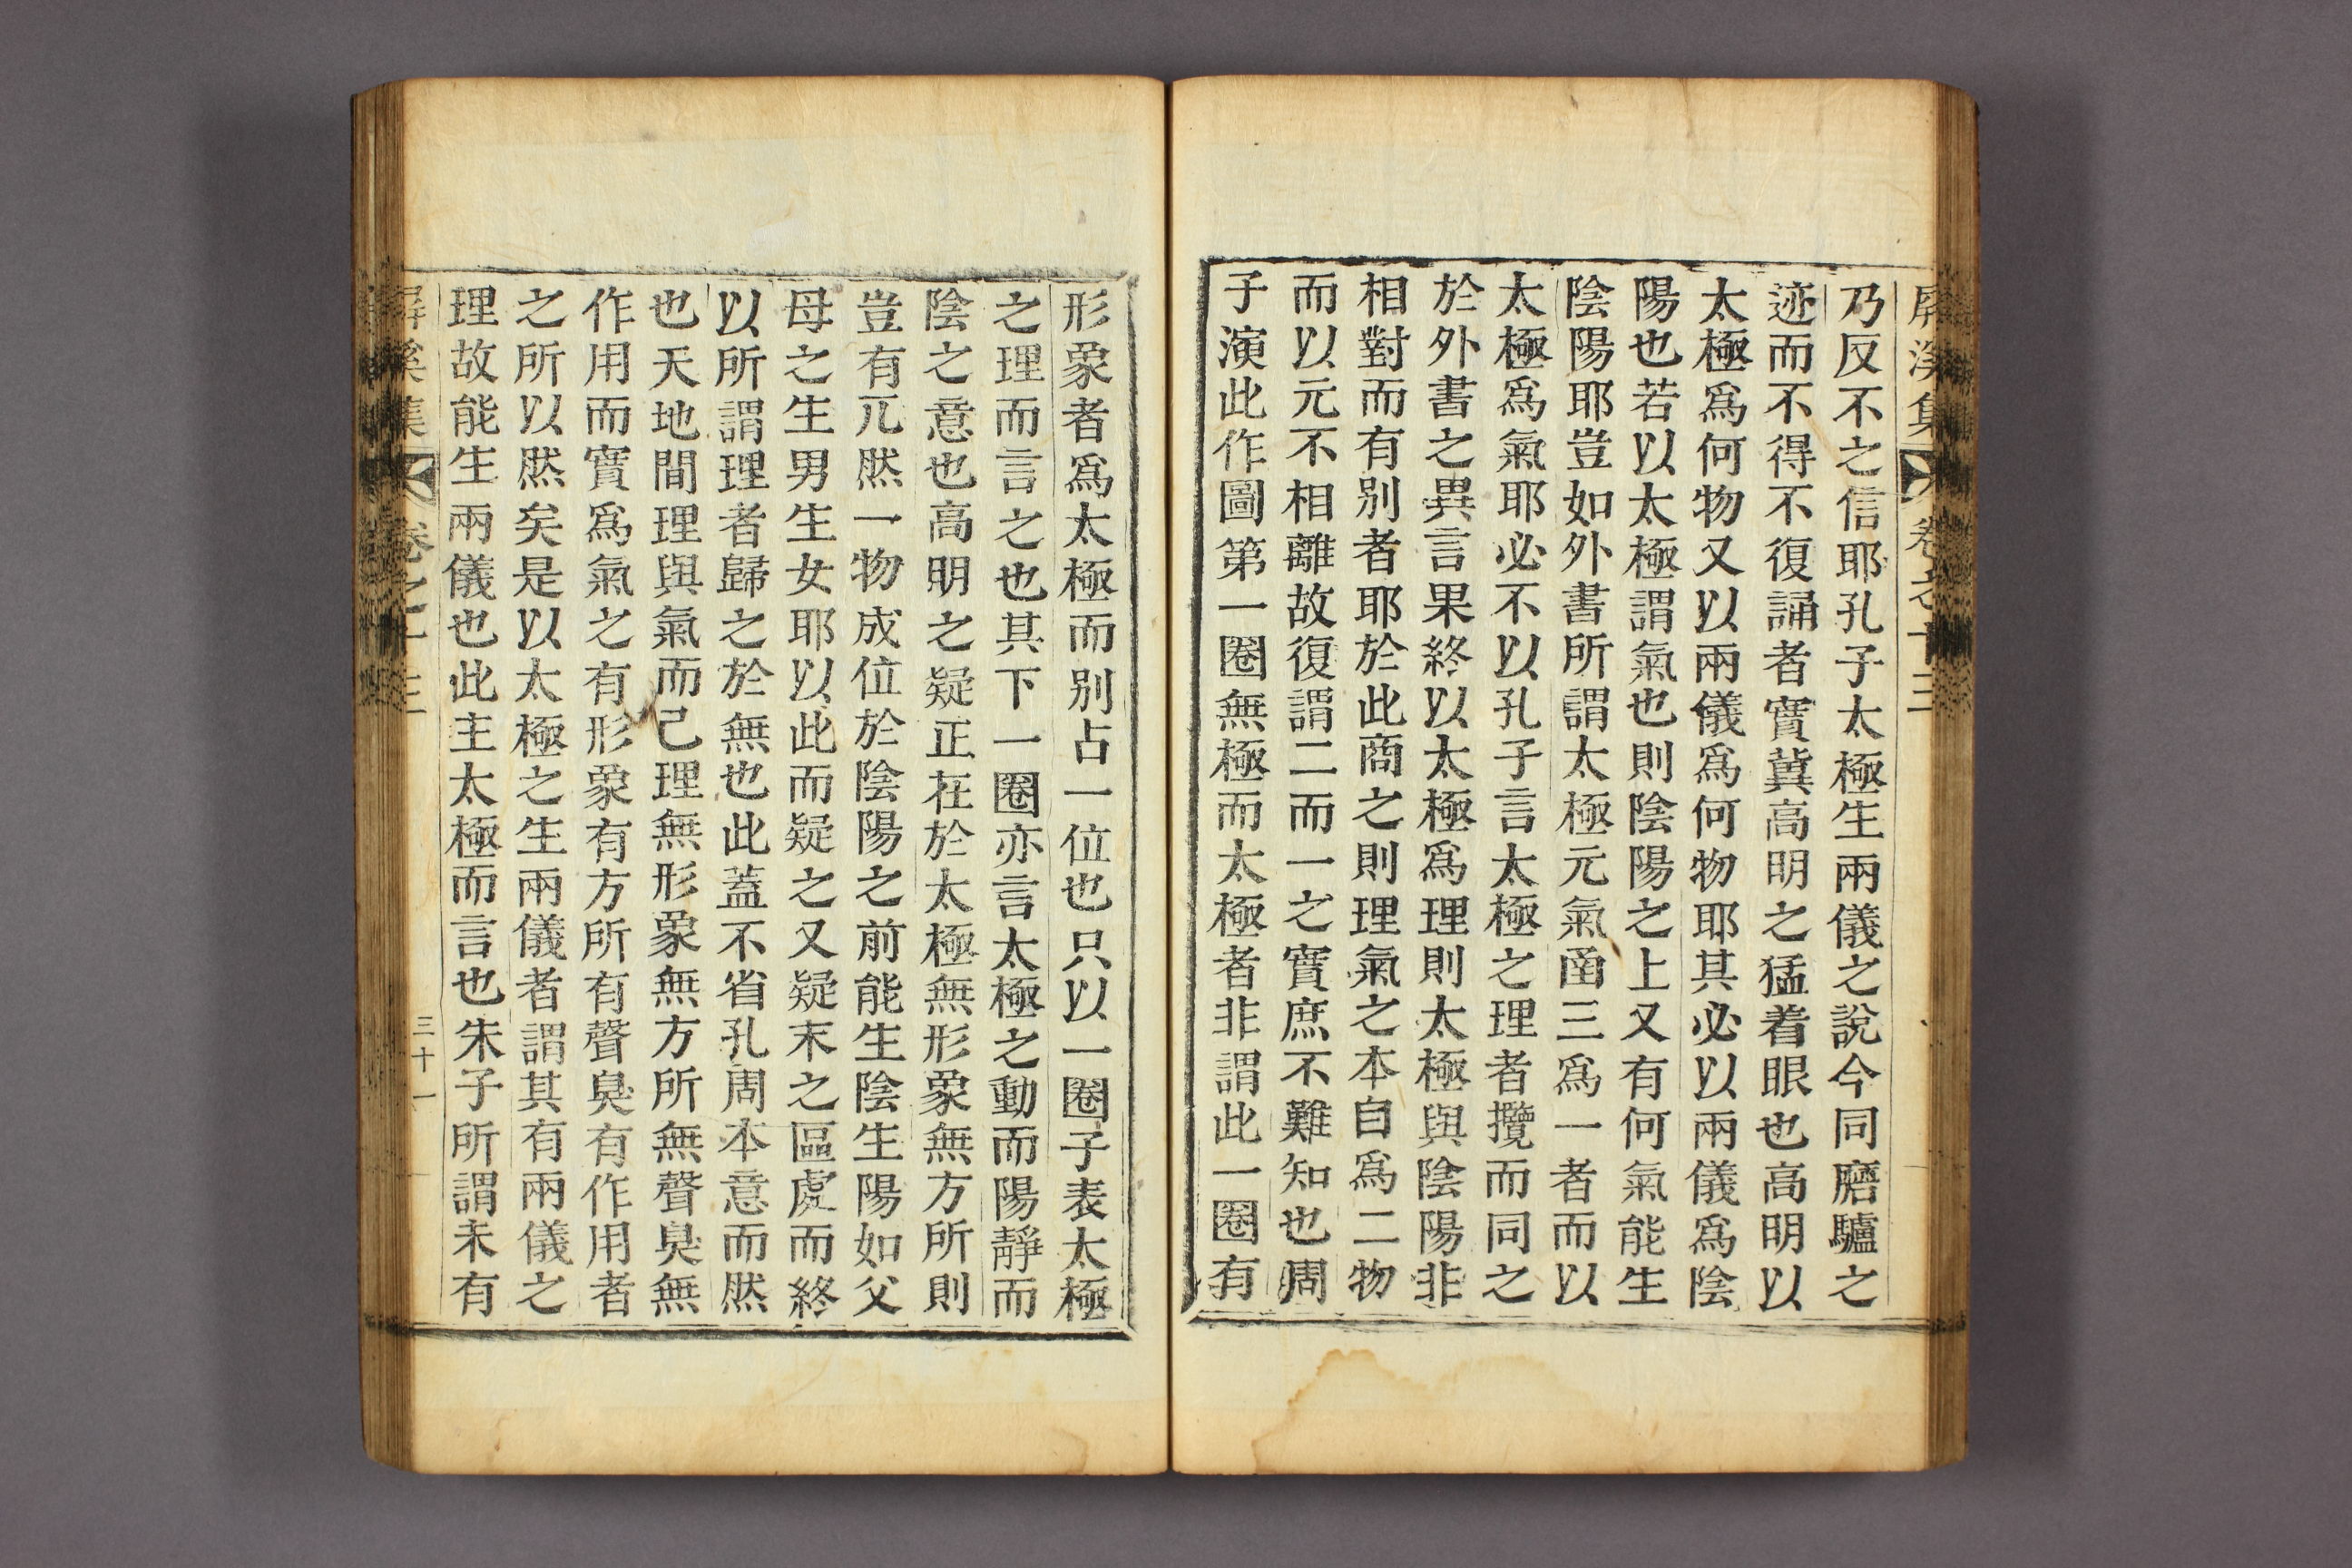 屏溪集 卷之十三
乃反不之信耶孔子太極生兩儀之說今同磨驢之
迹而不得不復誦者實冀高明之猛着眼也高明以
太極爲何物又以兩儀爲何物耶其必以兩儀爲陰
陽也若以太極謂氣也則陰陽之上又有何氣能生
陰陽耶豈如外書所謂太極元氣凾三爲一者而以
太極爲氣耶必不以孔子言太極之理者攬而同之
於外書之異言果終以太極爲理則太極與陰陽非
相對而有別者耶於此商之則理氣之本自爲二物
而以元不相離故復謂二而一之實庶不難知也周
子演此作圖第一圈無極而太極者非謂此一圈有
形象者爲太極而別占一位也只以一圈子表太極
之理而言之也其下一圈亦言太極之動而陽靜而
陰之意也高明之疑正在於太極無形象無方所則
豈有兀然一物成位於陰陽之前能生陰生陽如父
母之生男生女耶以此而疑之又疑末之區處而終
以所謂理者歸之於無也此蓋不省孔周本意而然
也天地間理與氣而已理無形象無方所無聲臭無
作用而實爲氣之有形象有方所有聲臭有作用者
之所以然矣是以太極之生兩儀者謂其有兩儀之
理故能生兩儀也此主太極而言也朱子所謂未有
屏溪集 卷之十三 三十一